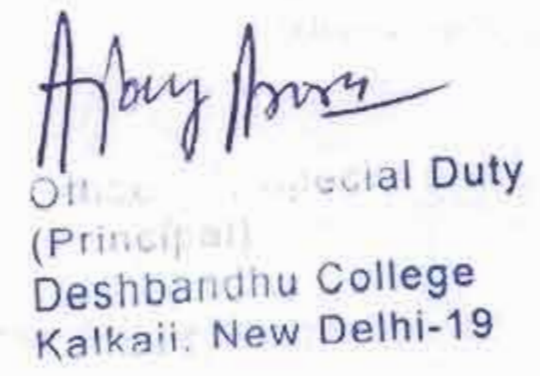 Ajay Arora
Special Duty
(Principal)
Deshbandhu College
Kalkaji, New Delhi-19